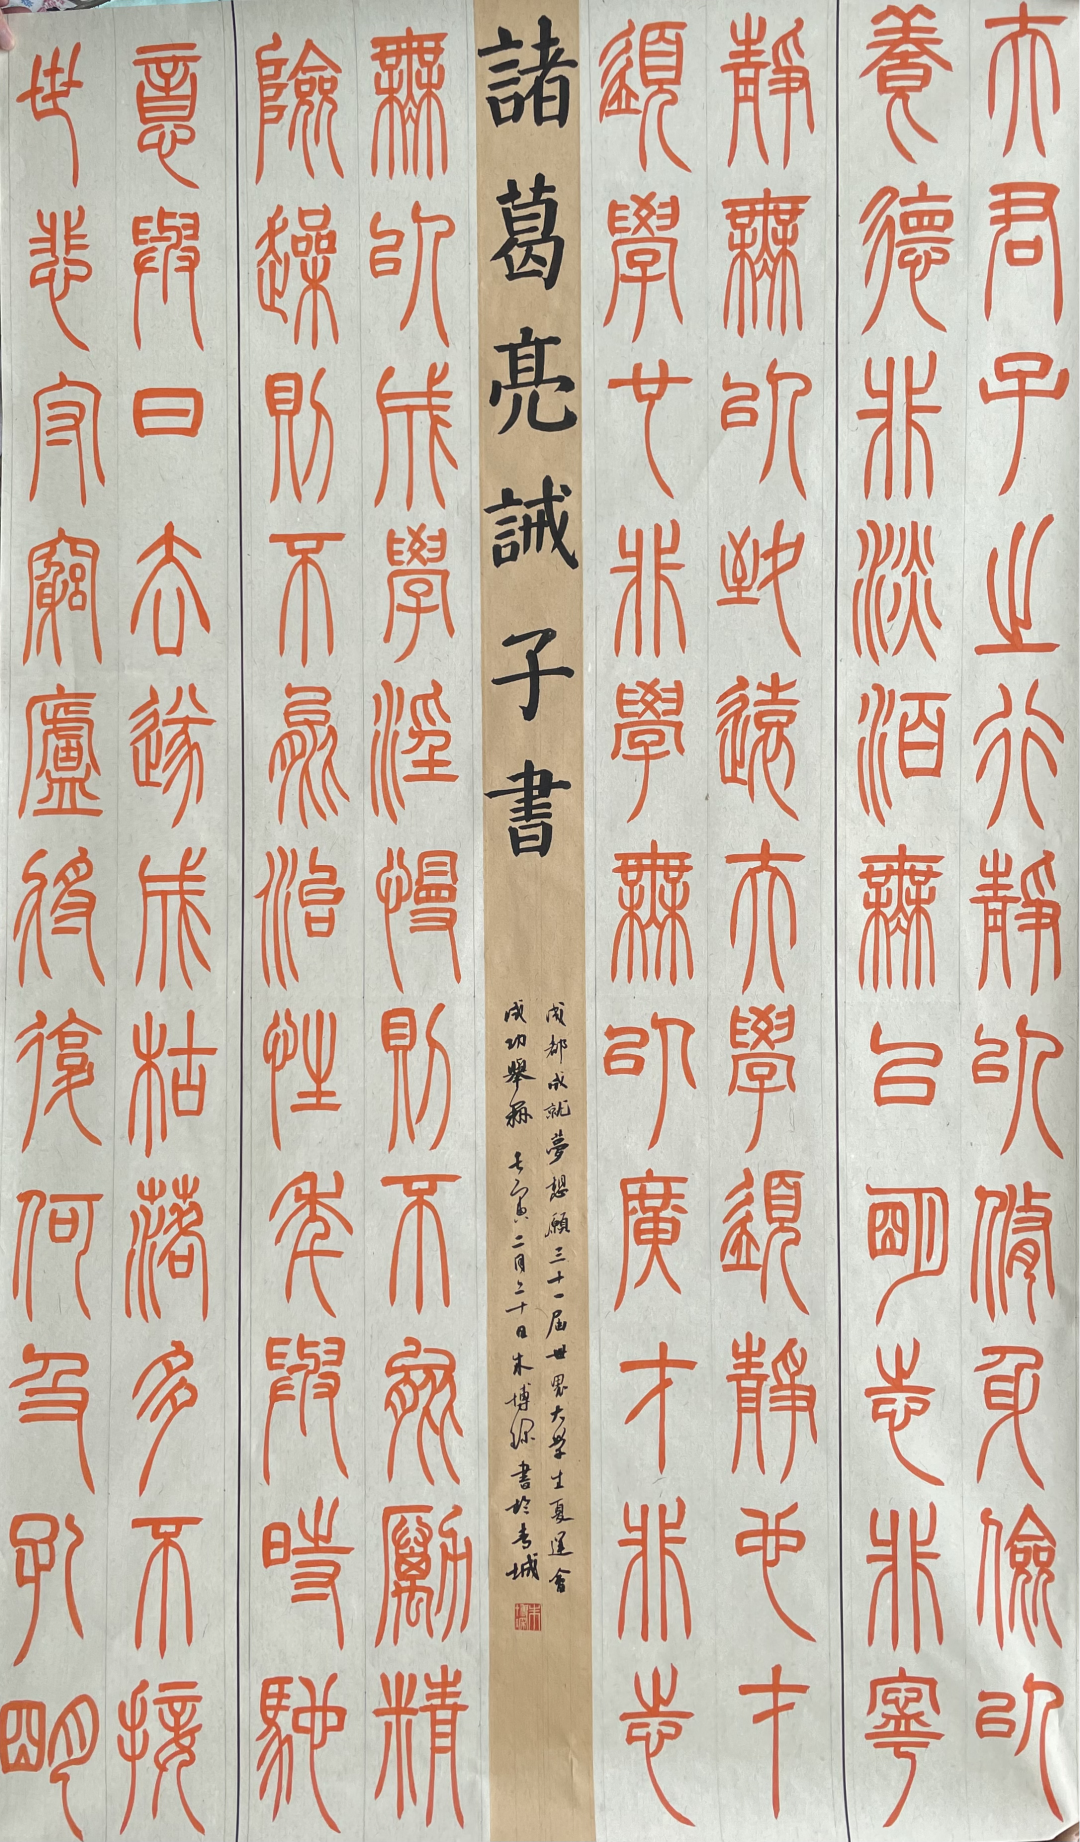 夫君子之行靜以修身儉以
養德非淡泊無以明志非寧
靜無以致遠夫學須靜也才
須學也非學無以廣才非志
諸葛亮誡子書
成都成就夢想願三十一届世界大學生夏運會
成功舉辦 壬寅二月二十日書於春城
無以成學淫慢則不能勵精
險躁則不能治性年與時馳
意與日去遂成枯落多不接
世悲守窮廬將復何及孔明